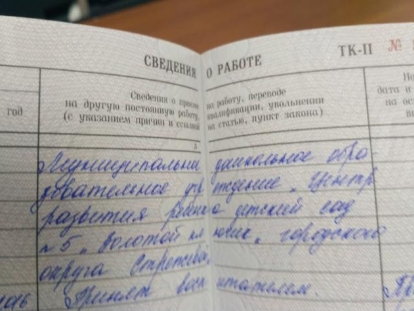 СВЕДЕНИЯ О РАБОТЕ ТК-II №
год
Сведения о приеме на работу, переводе
на другую постоянную работу, квалификации, увольнении
(с указанием причин и ссылкой на статью, пункт закона)
дата и
на ос
3.
Муниципальн дошкольное обра
зовательное уч реждение „Центр
развития ребенка детский сад
№ 5 „Золотой ключик" городского
округа Стрежевой
Принята воспитателем.